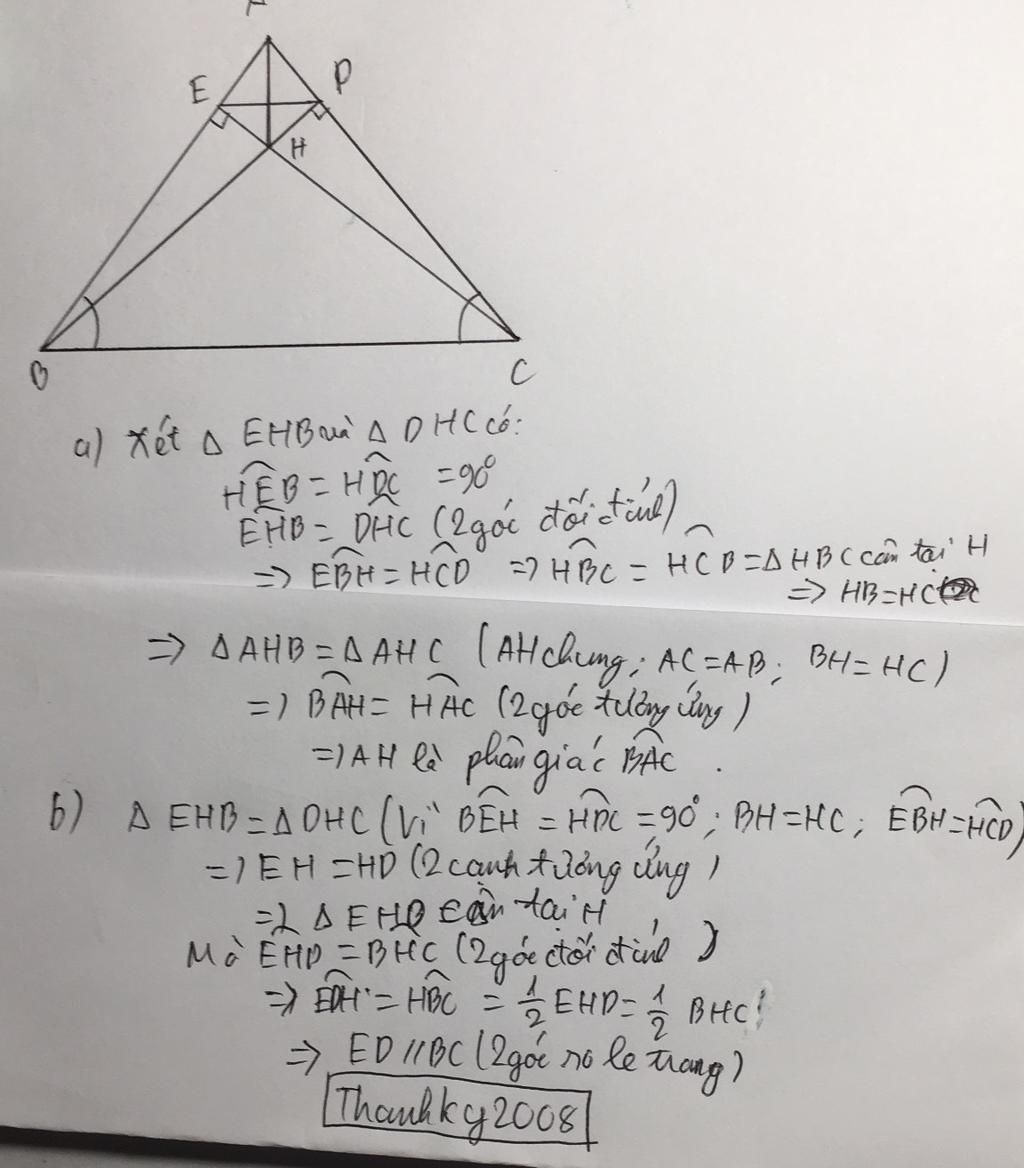 A
E
D
H
B
C
a) Xét Δ EHB và Δ DHC có:
HEB = HDC = 90°
EHB = DHC (2 góc đối đỉnh)
=> EBH = HCD => HBC = HCB = Δ HBC cân tại H
=> HB = HC
=> Δ AHB = Δ AHC (AH chung; AC = AB; BH = HC)
=> BAH = HAC (2 góc tương ứng)
=> AH là phân giác BAC.
b) Δ EHB = Δ DHC (Vì BEH = HDC = 90°; BH = HC; EBH = HCD)
=> EH = HD (2 cạnh tương ứng)
=> Δ EHD cân tại H
Mà EHD = BHC (2 góc đối đỉnh)
=> EDH = HBC = 1/2 EHD = 1/2 BHC
=> ED // BC (2 góc so le trong)
Thanhky2008